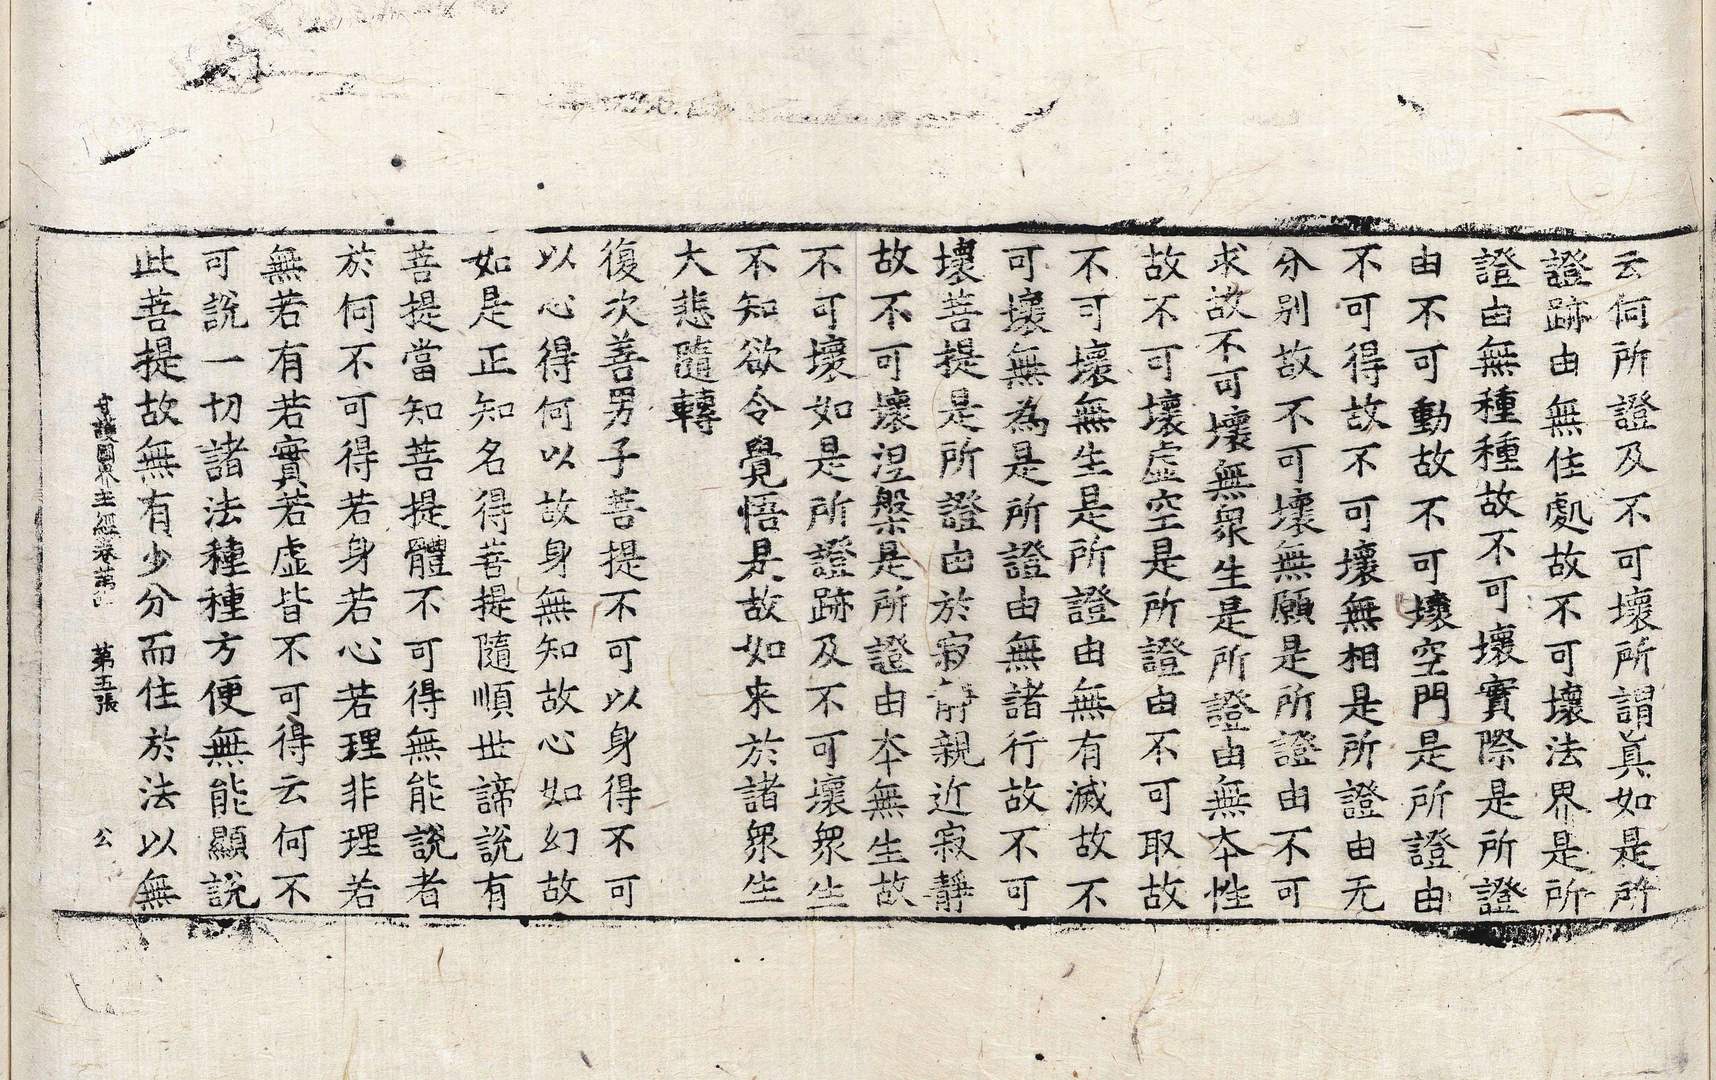 云何所證及不可壞所謂真如是所
證跡由無住處故不可壞法界是所
證由無種種故不可壞實際是所證
由不可動故不可壞空門是所證由
不可得故不可壞無相是所證由无
分別故不可壞無願是所證由不可
求故不可壞無衆生是所證由無本性
故不可壞虛空是所證由不可取故
不可壞無生是所證由無有滅故不
可壞無為是所證由無諸行故不可
壞菩提是所證由於寂靜親近寂靜
故不可壞涅槃是所證由本無生故
不可壞如是所證跡及不可壞衆生
不知欲令覺悟是故如来於諸衆生
大悲隨轉
復次善男子菩提不可以身得不可
以心得何以故身無知故心如幻故
如是正知名得菩提隨順世諦說有
菩提當知菩提體不可得無能說者
於何不可得若身若心若理非理若
無若有若實若虛皆不可得云何不
可說一切諸法種種方便無能顯說
此菩提故無有少分而住於法以無
守護國界主經卷第 第五張 公